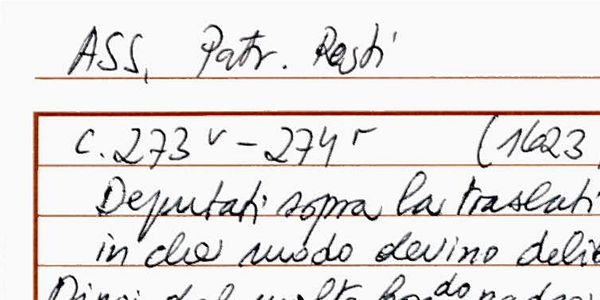 ASS, Patr. Resti
c. 273 v - 274 r (1623
Deputati sopra la traslati
in che modo devino delib